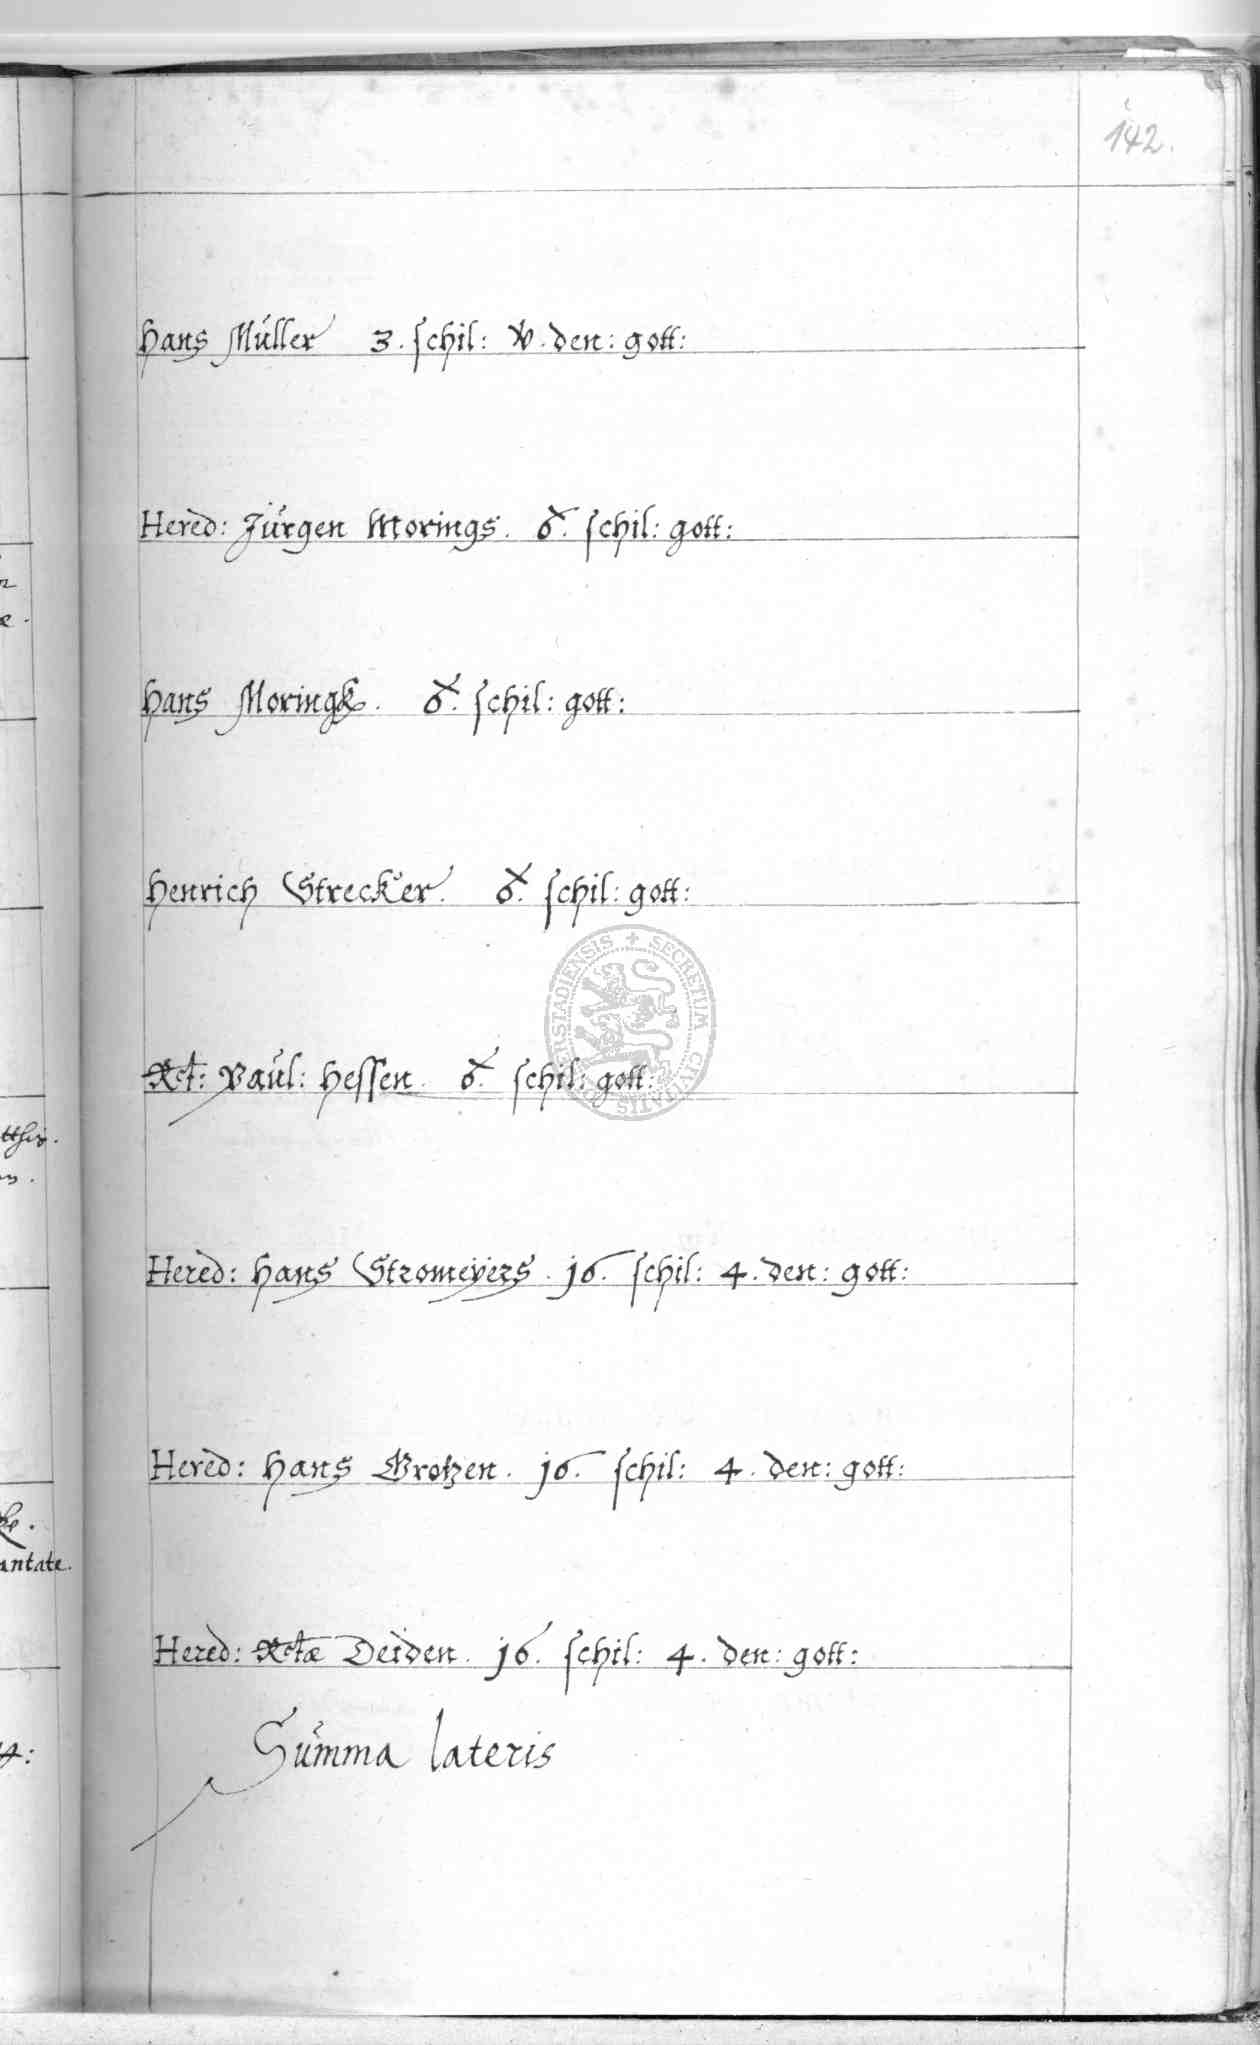 142.
Hans Müller 3. schil: W. den: gott:
Hered: Jürgen Morings. 8. schil: gott:
Hans Moringk. 8. schil: gott:
Henrich Strecker. 8. schil: gott:
Rct: Paul: Hessen. 8. schil: gott:
Hered: Hans Stromeÿers. 16. schil: 4. den: gott:
Hered: Hans Grotzen. 16. schil: 4. den: gott:
Hered: Rctæ Deiden. 16. schil: 4. den: gott:
Summa lateris
antate.
SECRETUM CIVITATIS ERSTADIENSIS